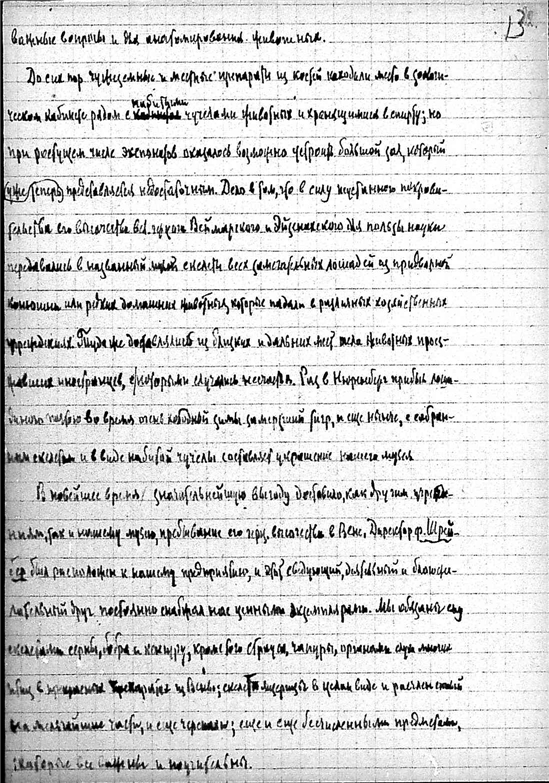 13
важные вопросы и для анатомирования животных.
До сих пор чужеземные и местные препараты из костей находили место в зоологи-
ческом кабинете рядом с набитыми чучелами животных и хранящимися в спирту; но
при растущем числе экспонатов оказалось возможно устроить большой зал, который
уже теперь представляется недостаточным. Дело в том, что в силу неустанного покрови-
тельства его высочества вел. герцога Веймарского и Эйзенахского для пользы науки
передавались в названный музей скелеты всех замечательных лошадей из придворной
конюшни или редких домашних животных, которые падали в различных хозяйственных
учреждениях. Туда же доставлялись из близких и дальних мест тела животных проез-
жавших иностранцев, с которыми случались несчастья. Раз в Нюрнберг прибыл лоша-
диною почтою во время очень холодной зимы замерзший тигр, и еще ныне, с собран-
ным скелетом и в виде набитой чучелы составляет украшение нашего музея
В новейшее время значительнейшую выгоду доставило, как другим учрежде-
ниям, так и нашему музею, пребывание его герц. высочества в Вене. Директор ф. Шрей-
бер был расположен к нашему предприятию, и этот сведующий, деятельный и благоже-
лательный друг постоянно снабжал нас ценными экземплярами. Мы обязаны ему
скелетами серны, бобра и кенгуру, кроме того страуса, цапли, органами слуха многих
птиц в прекрасных препаратах из Вены; скелет ящерицы в целом виде и расчлененный
на мельчайшие части, и еще черепахи; еще и еще бесчисленными предметами,
которые все важны и поучительны.